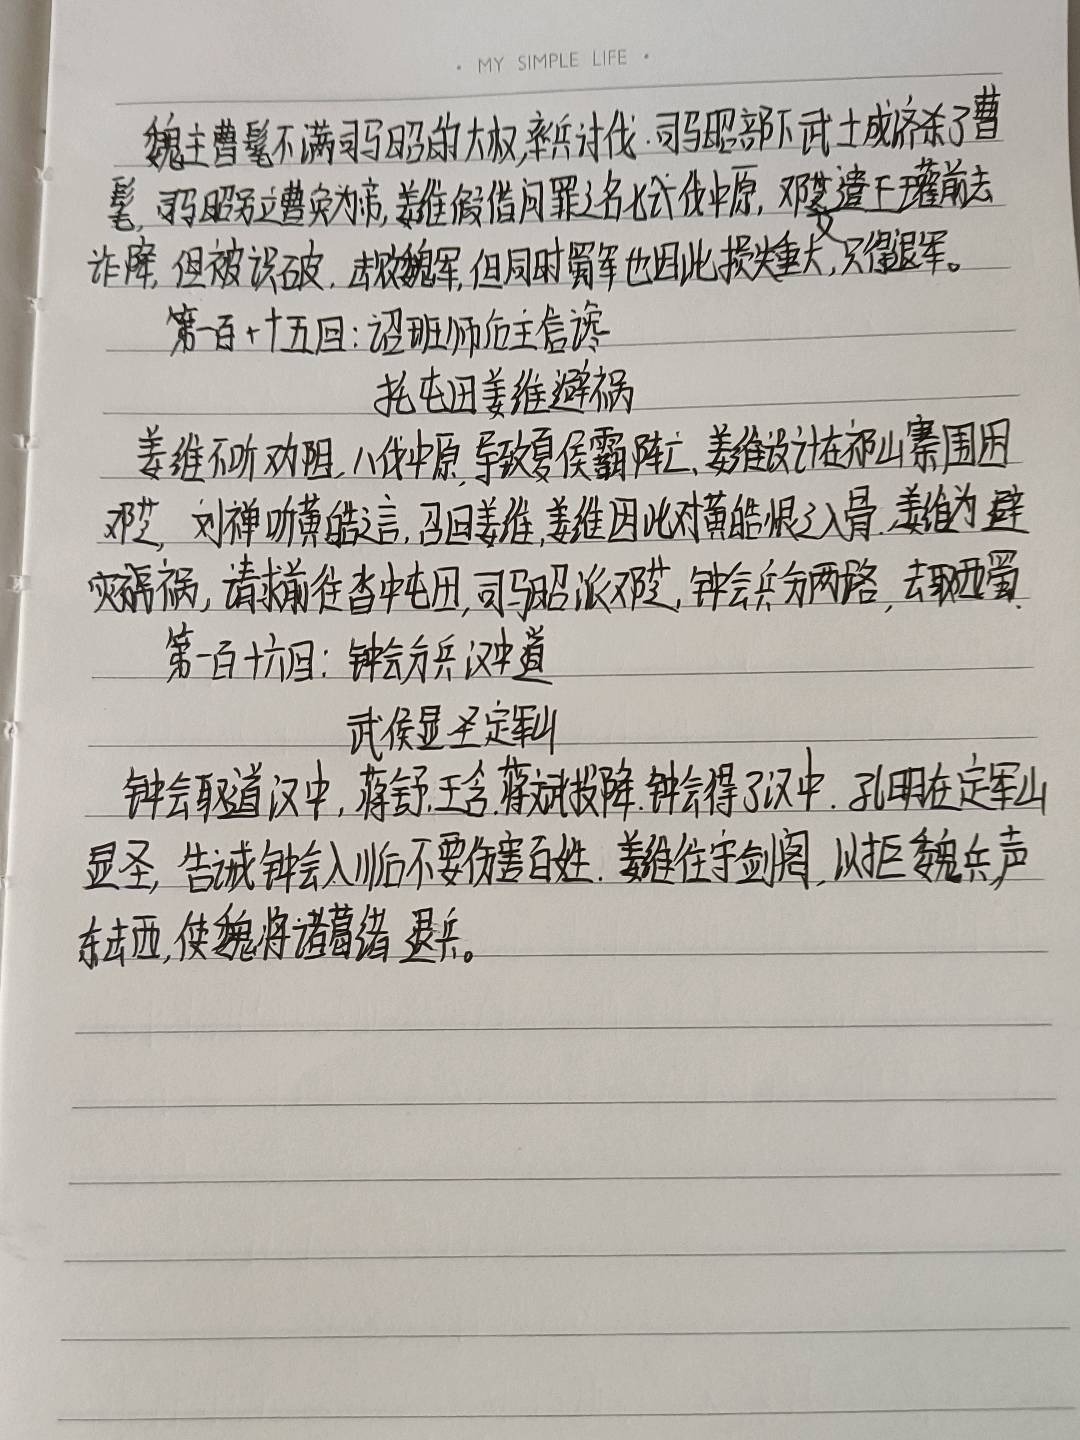 · MY SIMPLE LIFE ·
魏主曹髦不满司马昭的大权,率兵讨伐.司马昭部下武士成济杀了曹
髦,司马昭另立曹奂为帝,姜维假借问罪之名七伐中原,邓艾遣王瓘前去
诈降,但被识破.击败魏军,但同时蜀军也因此损失重大,只得退军。
第一百十五回:诏班师后主信谗
托屯田姜维避祸
姜维不听劝阻,八伐中原,导致夏侯霸阵亡、姜维设计在祁山寨围困
邓艾,刘禅听黄皓之言,召回姜维,姜维因此对黄皓恨之入骨.姜维为避
灾祸,请求前往沓中屯田,司马昭派邓艾,钟会兵分两路,去取西蜀.
第一百十六回:钟会分兵汉中道
武侯显圣定军山
钟会取道汉中,蒋舒.王含.蒋斌投降.钟会得了汉中.孔明在定军山
显圣,告诫钟会入川后不要伤害百姓.姜维住守剑阁,以拒魏兵,声
东击西,使魏将诸葛绪退兵。